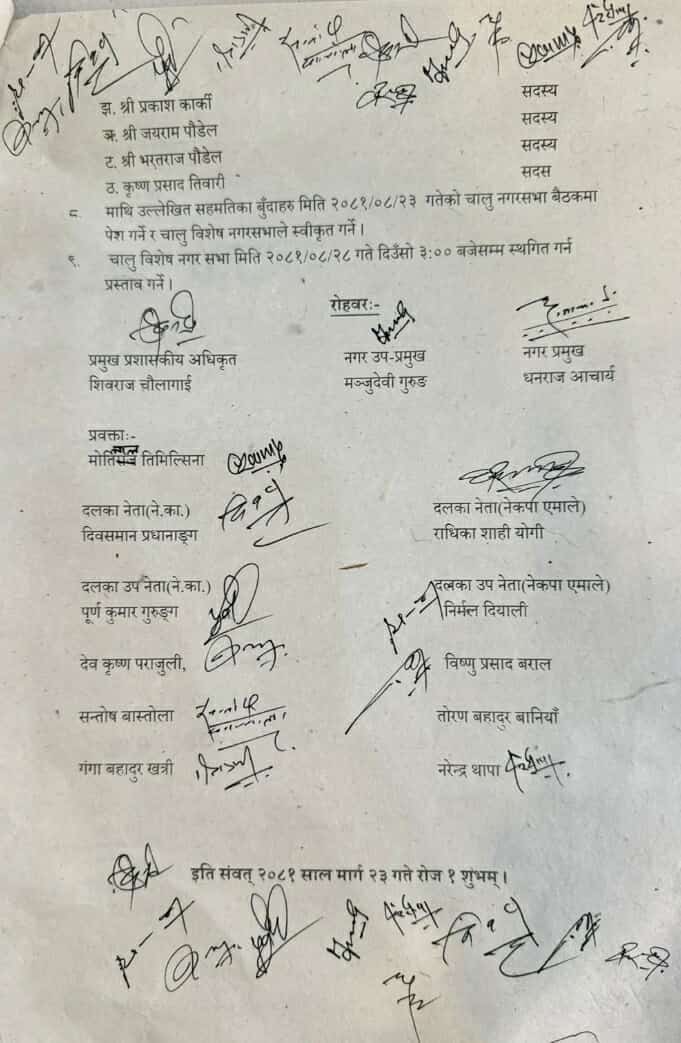 झ. श्री प्रकाश कार्की सदस्य
ञ. श्री जयराम पौडेल सदस्य
ट. श्री भरतराज पौडेल सदस्य
ठ. कृष्ण प्रसाद तिवारी सदस
८. माथि उल्लेखित सहमतिका बुँदाहरु मिति २०८१/०८/२३ गतेको चालु नगरसभा बैठकमा
पेश गर्ने र चालु विशेष नगरसभाले स्वीकृत गर्ने ।
९. चालु विशेष नगर सभा मिति २०८१/०८/२८ गते दिउँसो ३:०० बजेसम्म स्थगित गर्न
प्रस्ताव गर्ने ।
रोहवरः-
प्रमुख प्रशासकीय अधिकृत नगर उप-प्रमुख नगर प्रमुख
शिवराज चौलागाई मञ्जुदेवी गुरुङ धनराज आचार्य
प्रवक्ताः-
तिमिल्सिना
दलका नेता(ने.का.) दलका नेता(नेकपा एमाले)
दिवसमान प्रधानाङ्ग राधिका शाही योगी
दलका उप नेता(ने.का.) दलका उप नेता(नेकपा एमाले)
पूर्ण कुमार गुरुङ्ग निर्मल दियाली
देव कृष्ण पराजुली, विष्णु प्रसाद बराल
सन्तोष बास्तोला तोरण बहादुर बानियाँ
गंगा बहादुर खत्री नरेन्द्र थापा
इति संवत् २०८१ साल मार्ग २३ गते रोज १ शुभम् ।